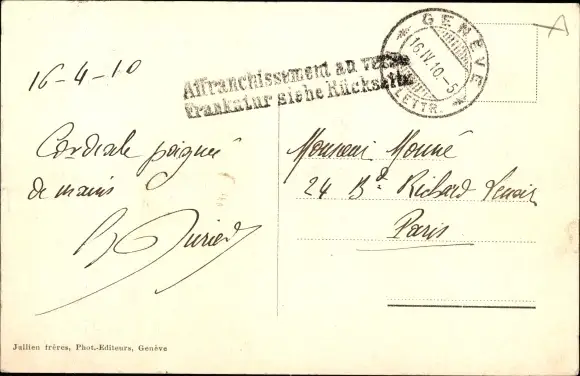 16-4-10
Affranchissement au verso
Frankatur siehe Rückseite
GENÈVE
16.IV.10.-5
LETTR.
Cordiale poignée
de mains
Monsieur Monné
24 Bd Richard Lenoir
Paris
Jullien frères, Phot.-Editeurs, Genève